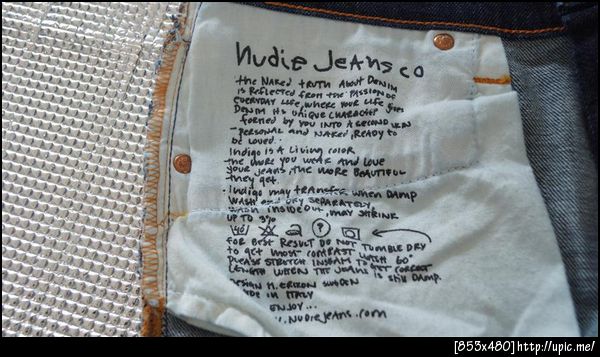 Nudie Jeans co
the Naked truth About Denim
is Reflected from the Passion of
everyday life, where your life gives
Denim its unique character
formed by you into a second skin
- personal and Naked, Ready to
be loved.
Indigo is A living color
- the more you wear and love
your jeans, the more beautiful
they get.
. Indigo may transfer when damp
wash and dry separately,
wash inside out, may shrink
up to 3%
for Best Result do not tumble dry
to get most contrast wash 60°
Please stretch inseam to
length when the jeans is still damp.
Design M. Erixon Sweden
Made in Italy
Enjoy...
.Nudiejeans.com
[853x480]http://upic.me/